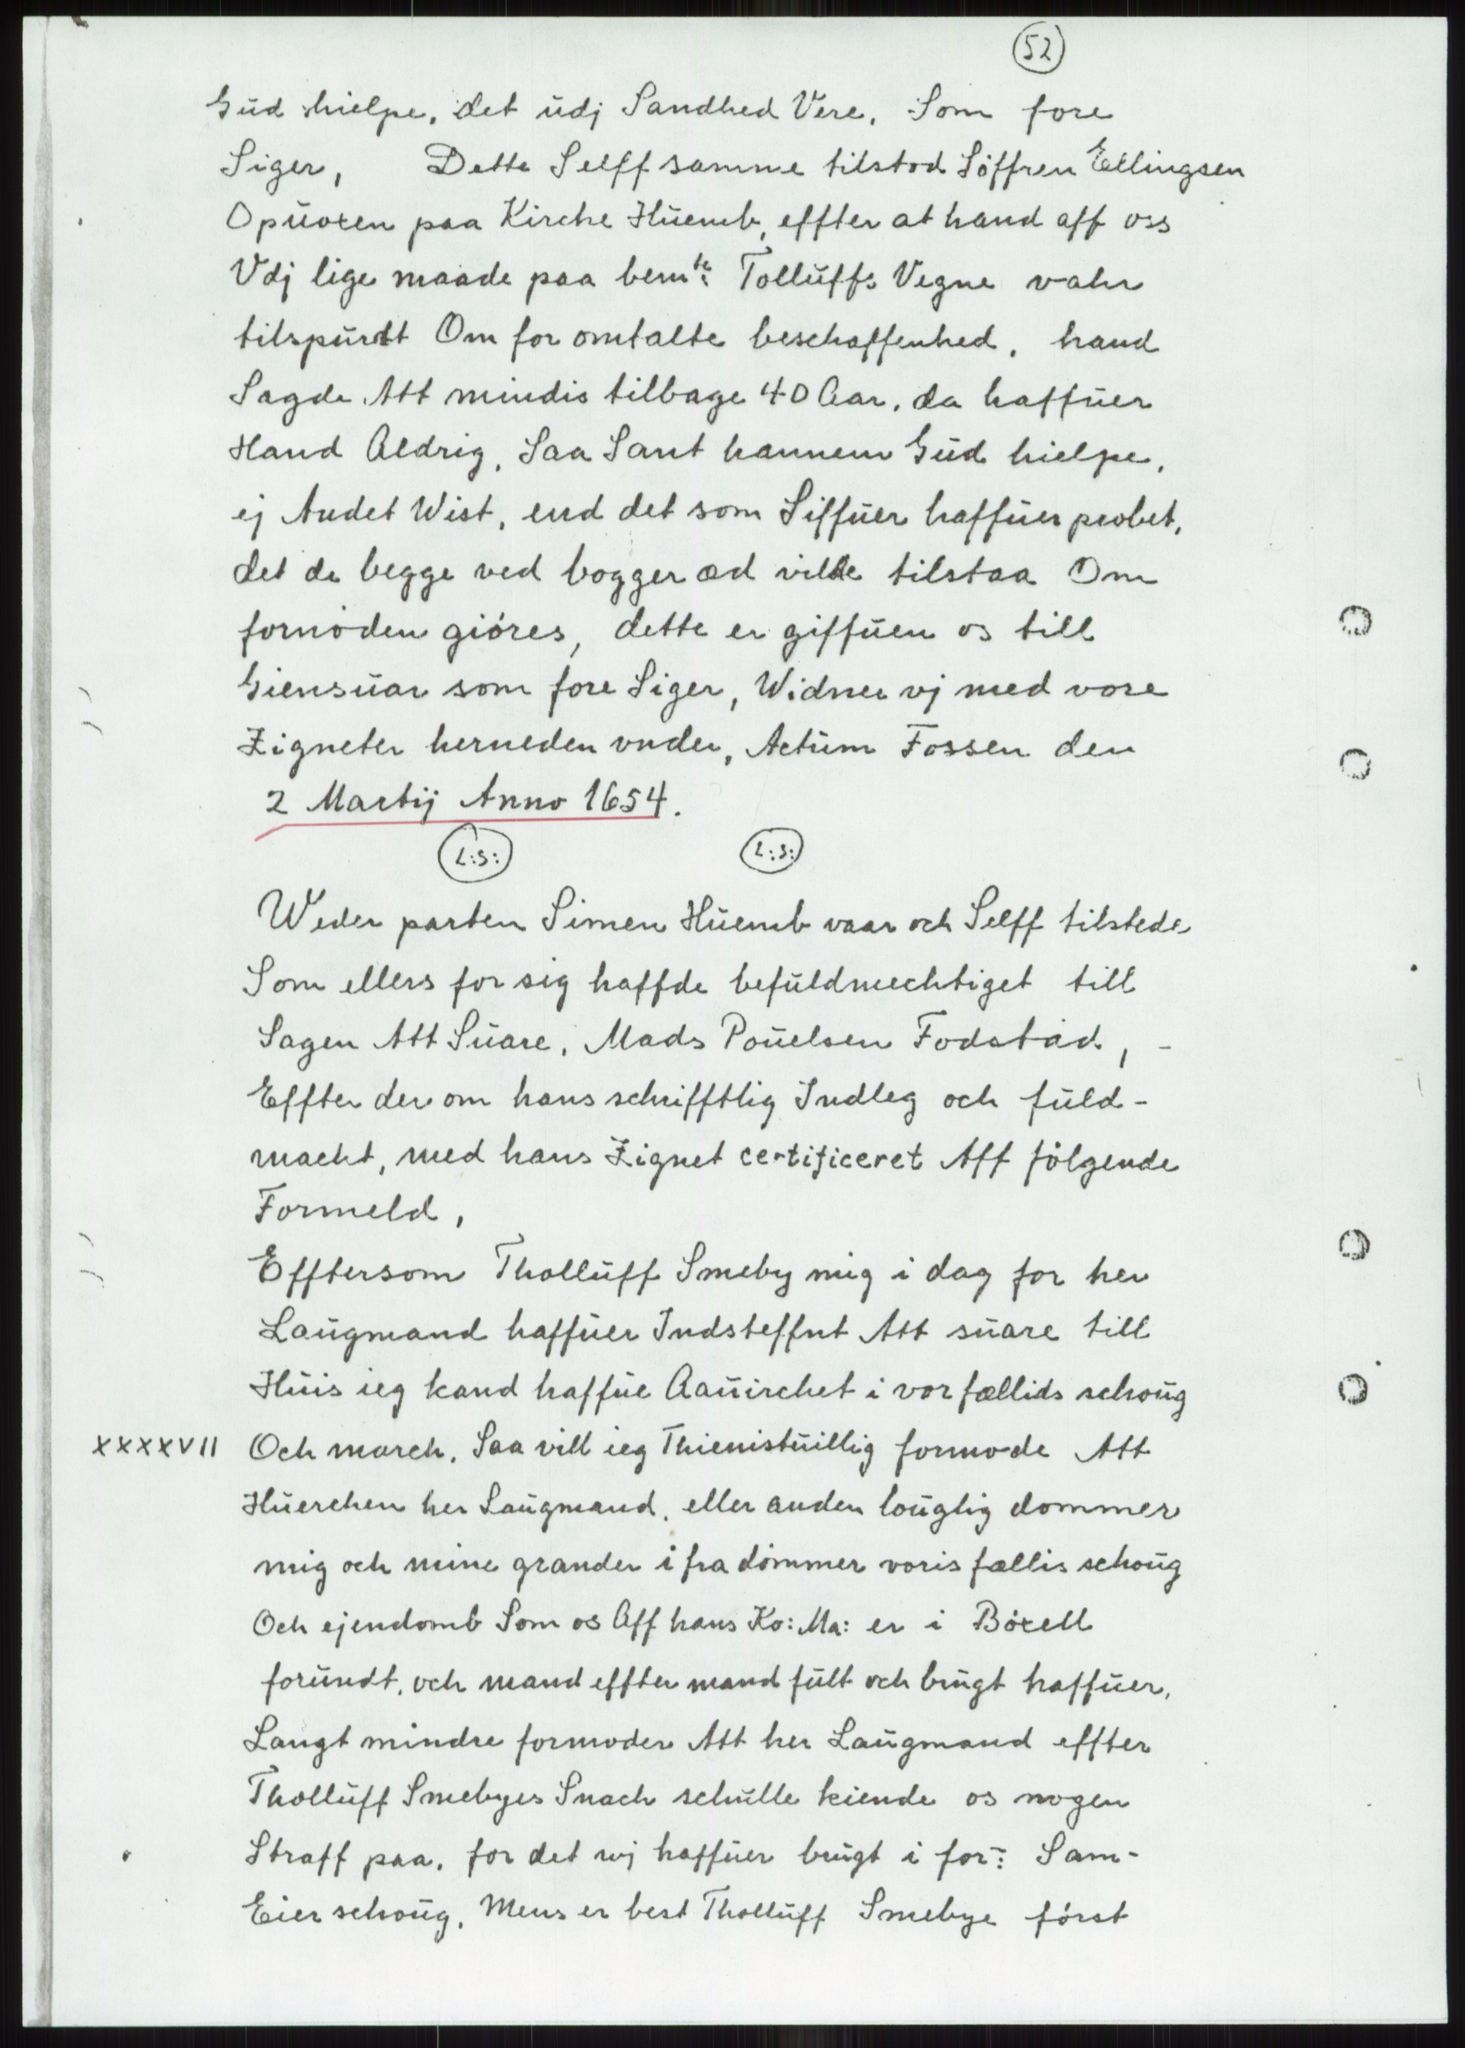 52
Gud hielpe, det udj Sandhed Vere, Som fore
Siger, Dette Selff samme tilstod Söffren Ellingsen
Opuoxen paa Kirche Huemb, effter at hand aff oss
Vdj lige maade paa bemte: Tolluffs Vegne vahr
tilspurdt Om for omtalte beschaffenhed, hand
Sagde Att mindis tilbage 40 Aar, da haffuer
Hand Aldrig, Saa Sant hannem Gud hielpe,
ej Andet Wist, end det som Siffuer haffuer probet,
det de begge ved bogger æd vilde tilstaa Om
fornöden giöres, dette er giffuen os till
Giensuar som fore Siger, Widner vj med vore
Zigneter herneden vnder, Actum Fossen den
2 Martij Anno 1654.
L:S: L:S:
Weder parten Simen Huemb vaar och Selff tilstede
Som ellers for sig haffde befuldmechtiget till
Sagen Att Suare, Mads Pouelsen Fodstad, -
Effter der om hans schrifftlig Indleg och fuld-
macht, med hans Zignet certificeret Aff fölgende
Formeld,
Efftersom Tholluff Smeby mig i dag for her
Laugmand haffuer Indsteffnt Att suare till
Huis ieg kand haffue Aauirchet i vor fællids schoug
XXXXVII Och march, Saa vill ieg Thienistuillig formode Att
Huerchen her Laugmand, eller anden louglig dommer
mig och mine grander i fra dömmer voris fællis schoug
Och ejendomb Som os Aff hans Ko: Ma: er i Böxell
forundt, och mand effter mand fult och brugt haffuer,
Langt mindre formoder Att her Laugmand effter
Tholluff Smebyes Snach schulle kiende os nogen
Straff paa, for det wj haffuer brugt i for-: Sam-
Eier schoug, Mens er best Tholluff Smebye först